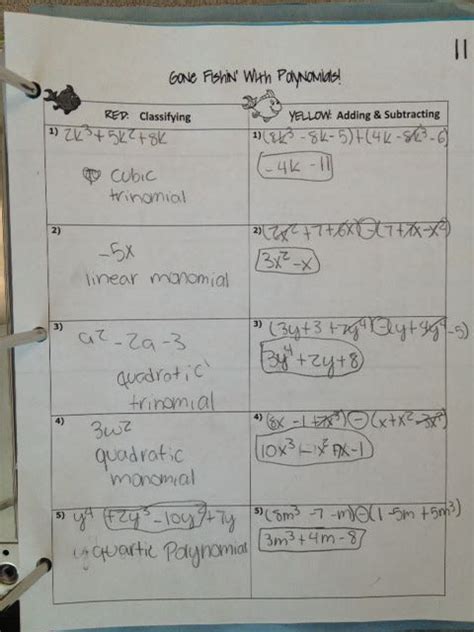 11
Gone Fishin' With Polynomials!
RED: Classifying
YELLOW: Adding & Subtracting
1) 2k³+5k²+8k
cubic
trinomial
1) (8k³ -8k-5)+(4k-8k³-6)
-4k -11
2)
-5x
linear monomial
2) (2x²+7+6x)-(7+7x-x²)
3x²-x
3) a²-2a-3
quadratic
trinomial
3) (3y+3+7y⁴)-(y+4y⁴-5)
3y⁴+2y+8
4) 3w²
quadratic
monomial
4) (8x -1+7x³)-(x+x²-3x³)
10x³-x²+7x-1
5) y⁴+2y³-10y²+7y
quartic Polynomial
5) (8m³ -7 -m)-(1-5m+5m³)
3m³+4m-8